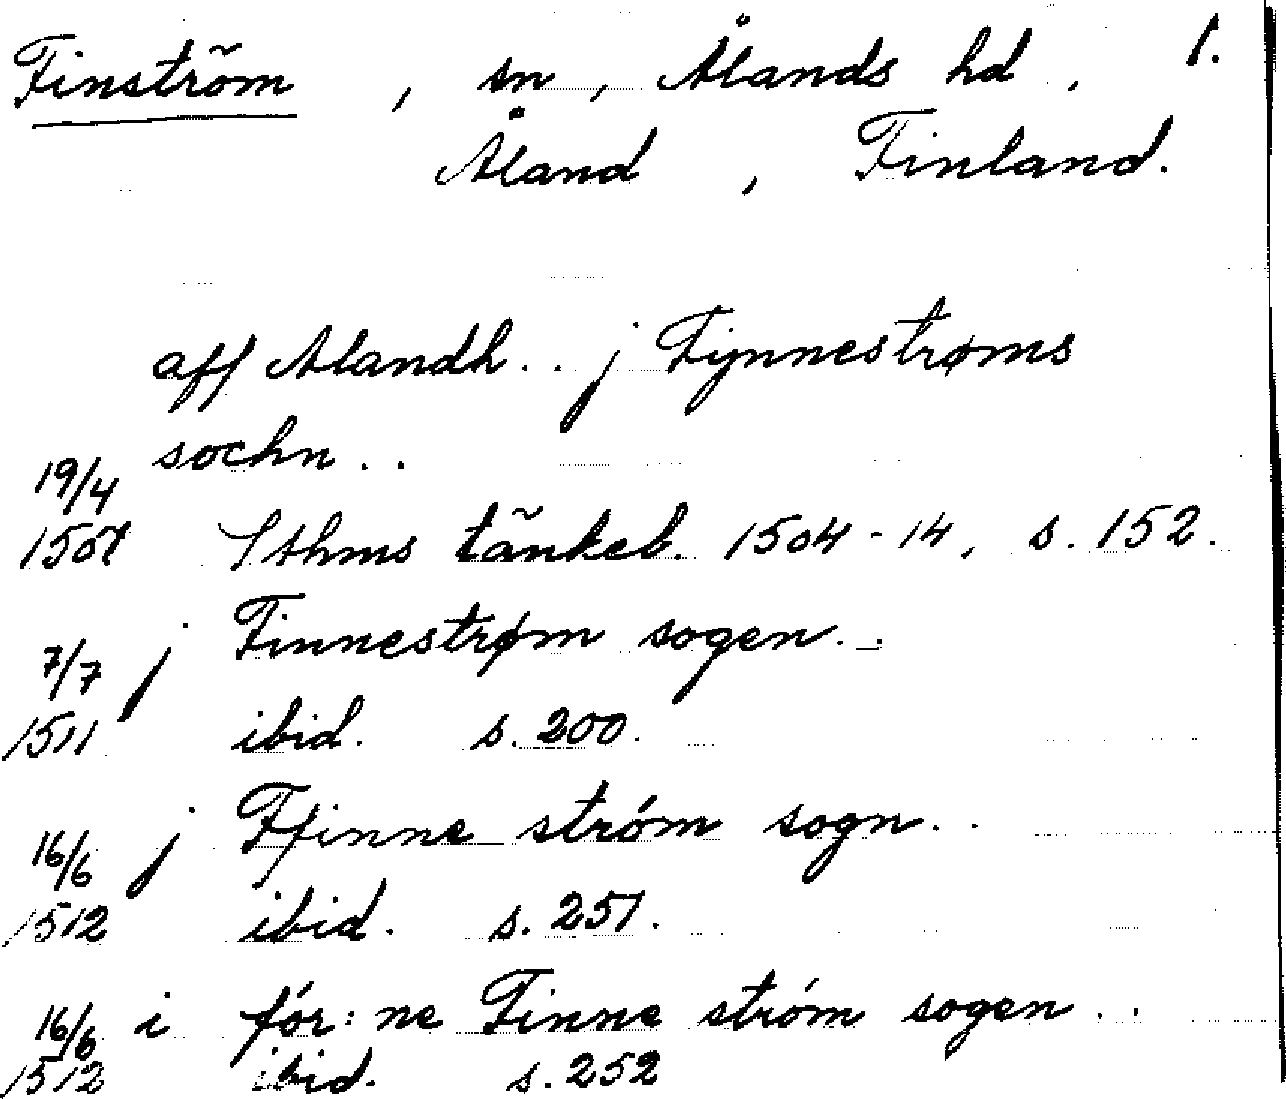 Finström, sn, Ålands hd, 1.
Åland, Finland.
aff Alandh.. j Fynnestrøms
sochn..
19/4
1507 Sthms tänkeb. 1504-14, s. 152.
7/7 j Finnestrøm sogen..
1511 ibid. s. 200.
16/6 j Ffinne ström sogn..
1512 ibid. s. 251.
16/6 i för:ne Finne ström sogen..
1512 ibid. s. 252